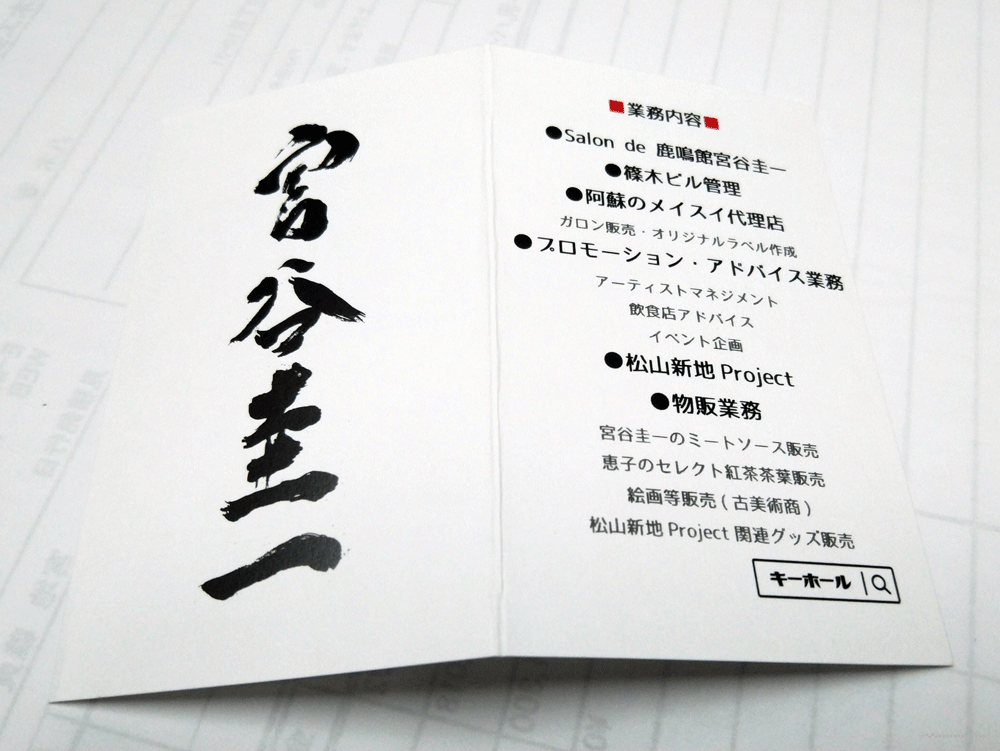 宮谷圭一
■業務内容■
●Salon de 鹿鳴館宮谷圭一
●篠木ビル管理
●阿蘇のメイスイ代理店
ガロン販売・オリジナルラベル作成
●プロモーション・アドバイス業務
アーティストマネジメント
飲食店アドバイス
イベント企画
●松山新地Project
●物販業務
宮谷圭一のミートソース販売
恵子のセレクト紅茶茶葉販売
絵画等販売(古美術商)
松山新地Project関連グッズ販売
キーホール